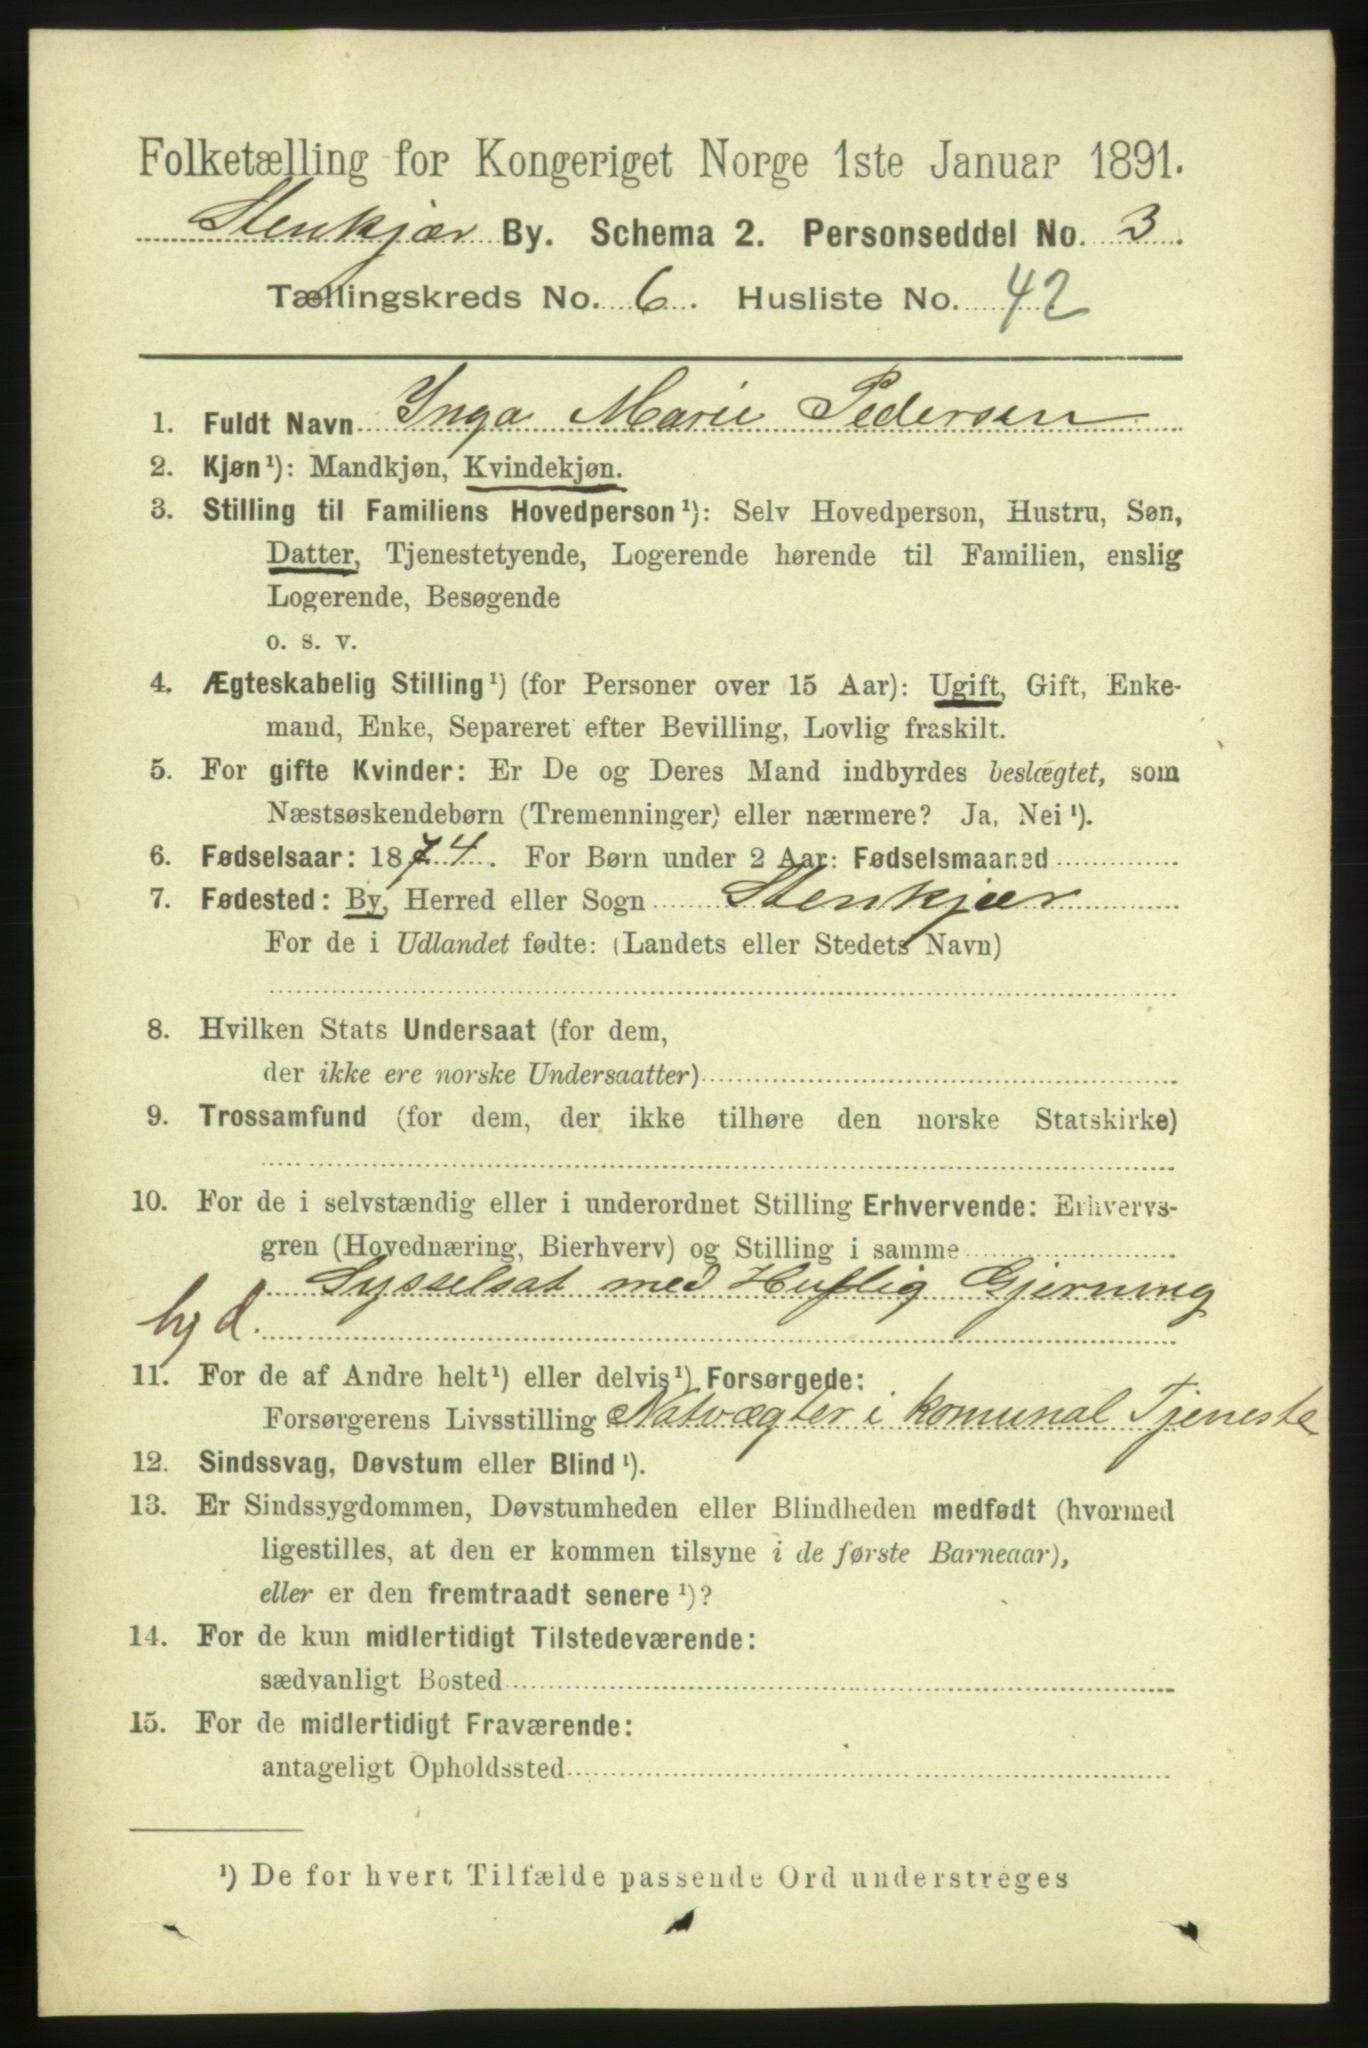 Folketælling for Kongeriget Norge 1ste Januar 1891.
Stenkjær By. Schema 2. Personseddel No. 3.
Tællingskreds No. 6. Husliste No. 42
1. Fuldt Navn Inga Marie Pedersen
2. Kjøn¹): Mandkjøn, Kvindekjøn.
3. Stilling til Familiens Hovedperson¹): Selv Hovedperson, Hustru, Søn,
Datter, Tjenestetyende, Logerende hørende til Familien, enslig
Logerende, Besøgende
o. s. v.
4. Ægteskabelig Stilling¹) (for Personer over 15 Aar): Ugift, Gift, Enke-
mand, Enke, Separeret efter Bevilling, Lovlig fraskilt.
5. For gifte Kvinder: Er De og Deres Mand indbyrdes beslægtet, som
Næstsøskendebørn (Tremenninger) eller nærmere? Ja, Nei¹).
6. Fødselsaar: 1874. For Børn under 2 Aar: Fødselsmaaned
7. Fødested: By, Herred eller Sogn Stenkjær
For de i Udlandet fødte: (Landets eller Stedets Navn)
8. Hvilken Stats Undersaat (for dem,
der ikke ere norske Undersaatter)
9. Trossamfund (for dem, der ikke tilhøre den norske Statskirke)
10. For de i selvstændig eller i underordnet Stilling Erhvervende: Erhvervs-
gren (Hovednæring, Bierhverv) og Stilling i samme
Sysselsat med Huslig Gjerning
hg d.
11. For de af Andre helt¹) eller delvis¹) Forsørgede:
Forsørgerens Livsstilling Natvægter i komunal Tjeneste
12. Sindssvag, Døvstum eller Blind¹).
13. Er Sindssygdommen, Døvstumheden eller Blindheden medfødt (hvormed
ligestilles, at den er kommen tilsyne i de første Barneaar),
eller er den fremtraadt senere¹)?
14. For de kun midlertidigt Tilstedeværende:
sædvanligt Bosted
15. For de midlertidigt Fraværende:
antageligt Opholdssted
¹) De for hvert Tilfælde passende Ord understreges